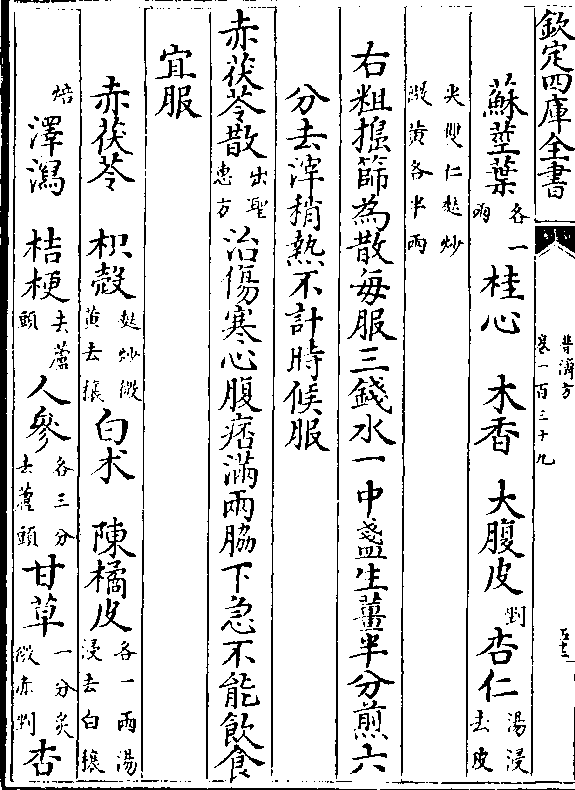 欽定四庫全書
普濟方
卷一百三十九
蘇莖葉各一兩 桂心 木香 大腹皮剉 杏仁湯浸去皮
尖雙仁麩炒微黄各半兩
右粗搗篩為散每服三錢水一中盞生薑半分煎六
分去滓稍熱不計時候服
赤茯苓散出聖惠方 治傷寒心腹痞滿兩脇下急不能飲食
宜服
赤茯苓 枳殼麩炒微黄去穰 白术 陳橘皮各一兩湯浸去白穰
焙 澤瀉 桔梗去蘆頭 人參各三分去蘆頭 甘草一分炙微赤剉 杏